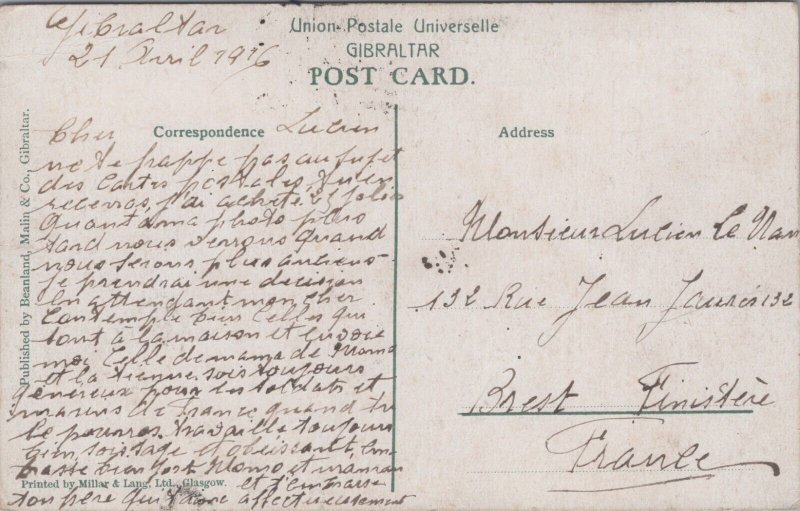 Gibraltar
21 Avril 1916
Union Postale Universelle
GIBRALTAR
POST CARD.
Published by Beanland, Malin & Co., Gibraltar.
Correspondence
Address
Cher Lucien
ne te frappe pas au sujet
des cartes postales, tu en
recevras, j'ai acheté jolie
Quant a ma photo plus
tard nous verrons quand
nous serons plus anciens
Je prendrai une decision
En attendant mon cher
Contemple bien celles qui
sont à la maison et envoie
moi celle de maman de Momo
et la tienne, sois toujours
généreux pour les soldats et
marins de france quand tu
le pourras. travaille toujours
bien, sois sage et obeissant, em-
basse bien fort Momo et maman
et t'embrasse
ton père qui t'aime affectueusement
Printed by Millar & Lang, Ltd., Glasgow.
Monsieur Lucien Le
132 Rue Jean Jaurès 132
Brest Finistère
France